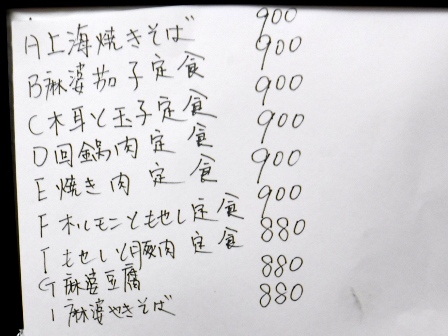 A上海焼きそば 900
B麻婆茄子定食 900
C木耳と玉子定食 900
D回鍋肉定食 900
E焼き肉定食 900
Fホルモンともやし定食 900
Iもやしと豚肉定食 880
G麻婆豆腐 880
I麻婆やきそば 880